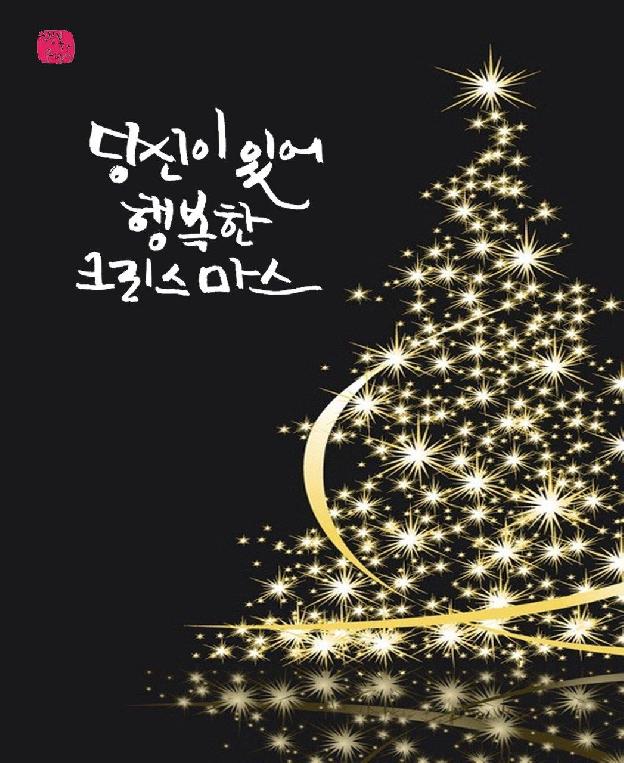 당신이 있어
행복한
크리스마스